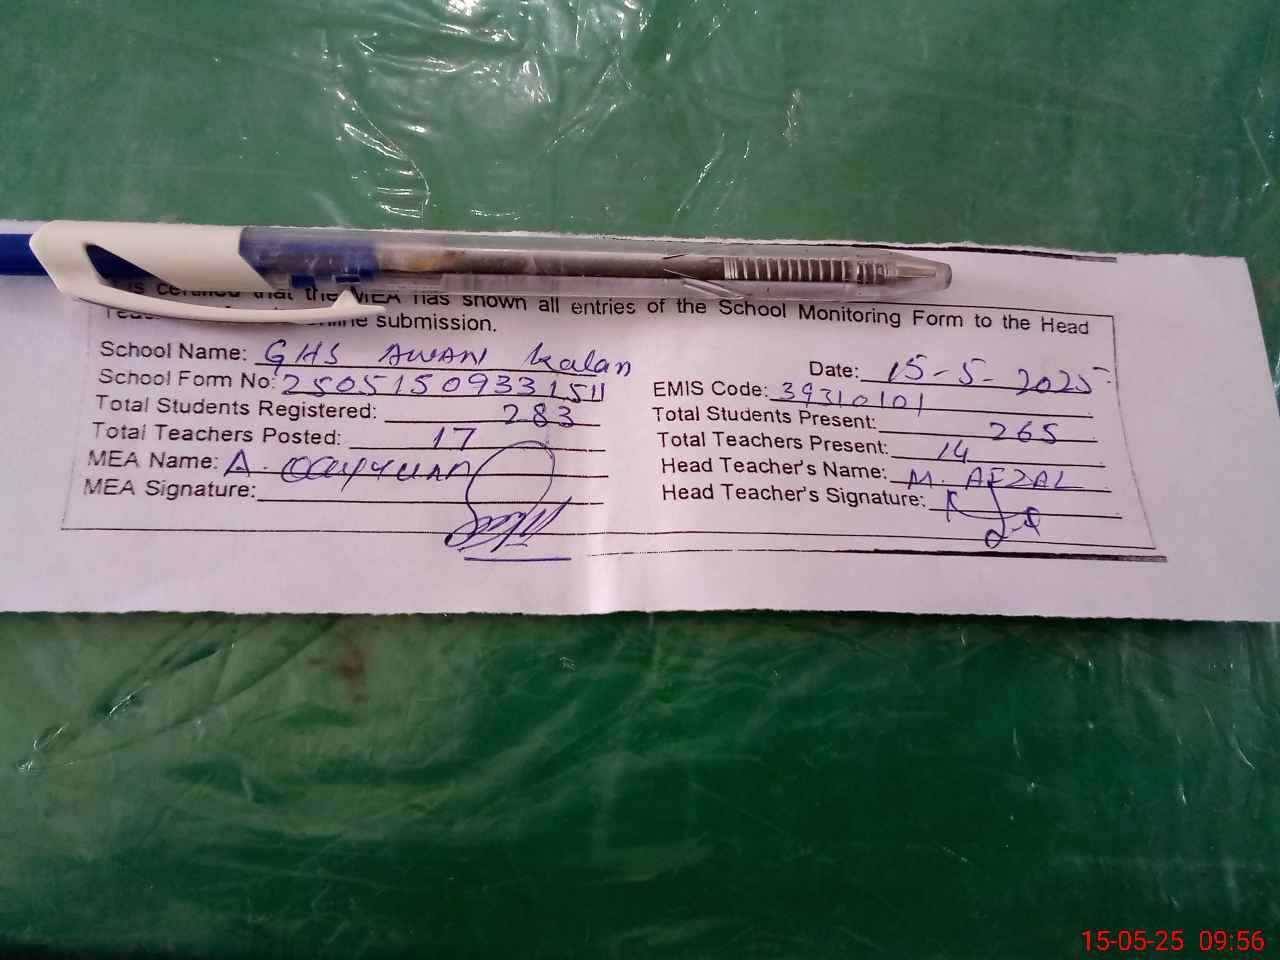 is certified that the MEA has shown all entries of the School Monitoring Form to the Head
submission.
School Name: GHS AWAN Kalan
Date: 15-5-2025
School Form No: 25051509331511
EMIS Code: 39310101
Total Students Registered: 283
Total Students Present: 265
Total Teachers Posted: 17
Total Teachers Present: 14
MEA Name: A.
Head Teacher's Name: M. AFZAL
MEA Signature:
Head Teacher's Signature:
15-05-25 09:56